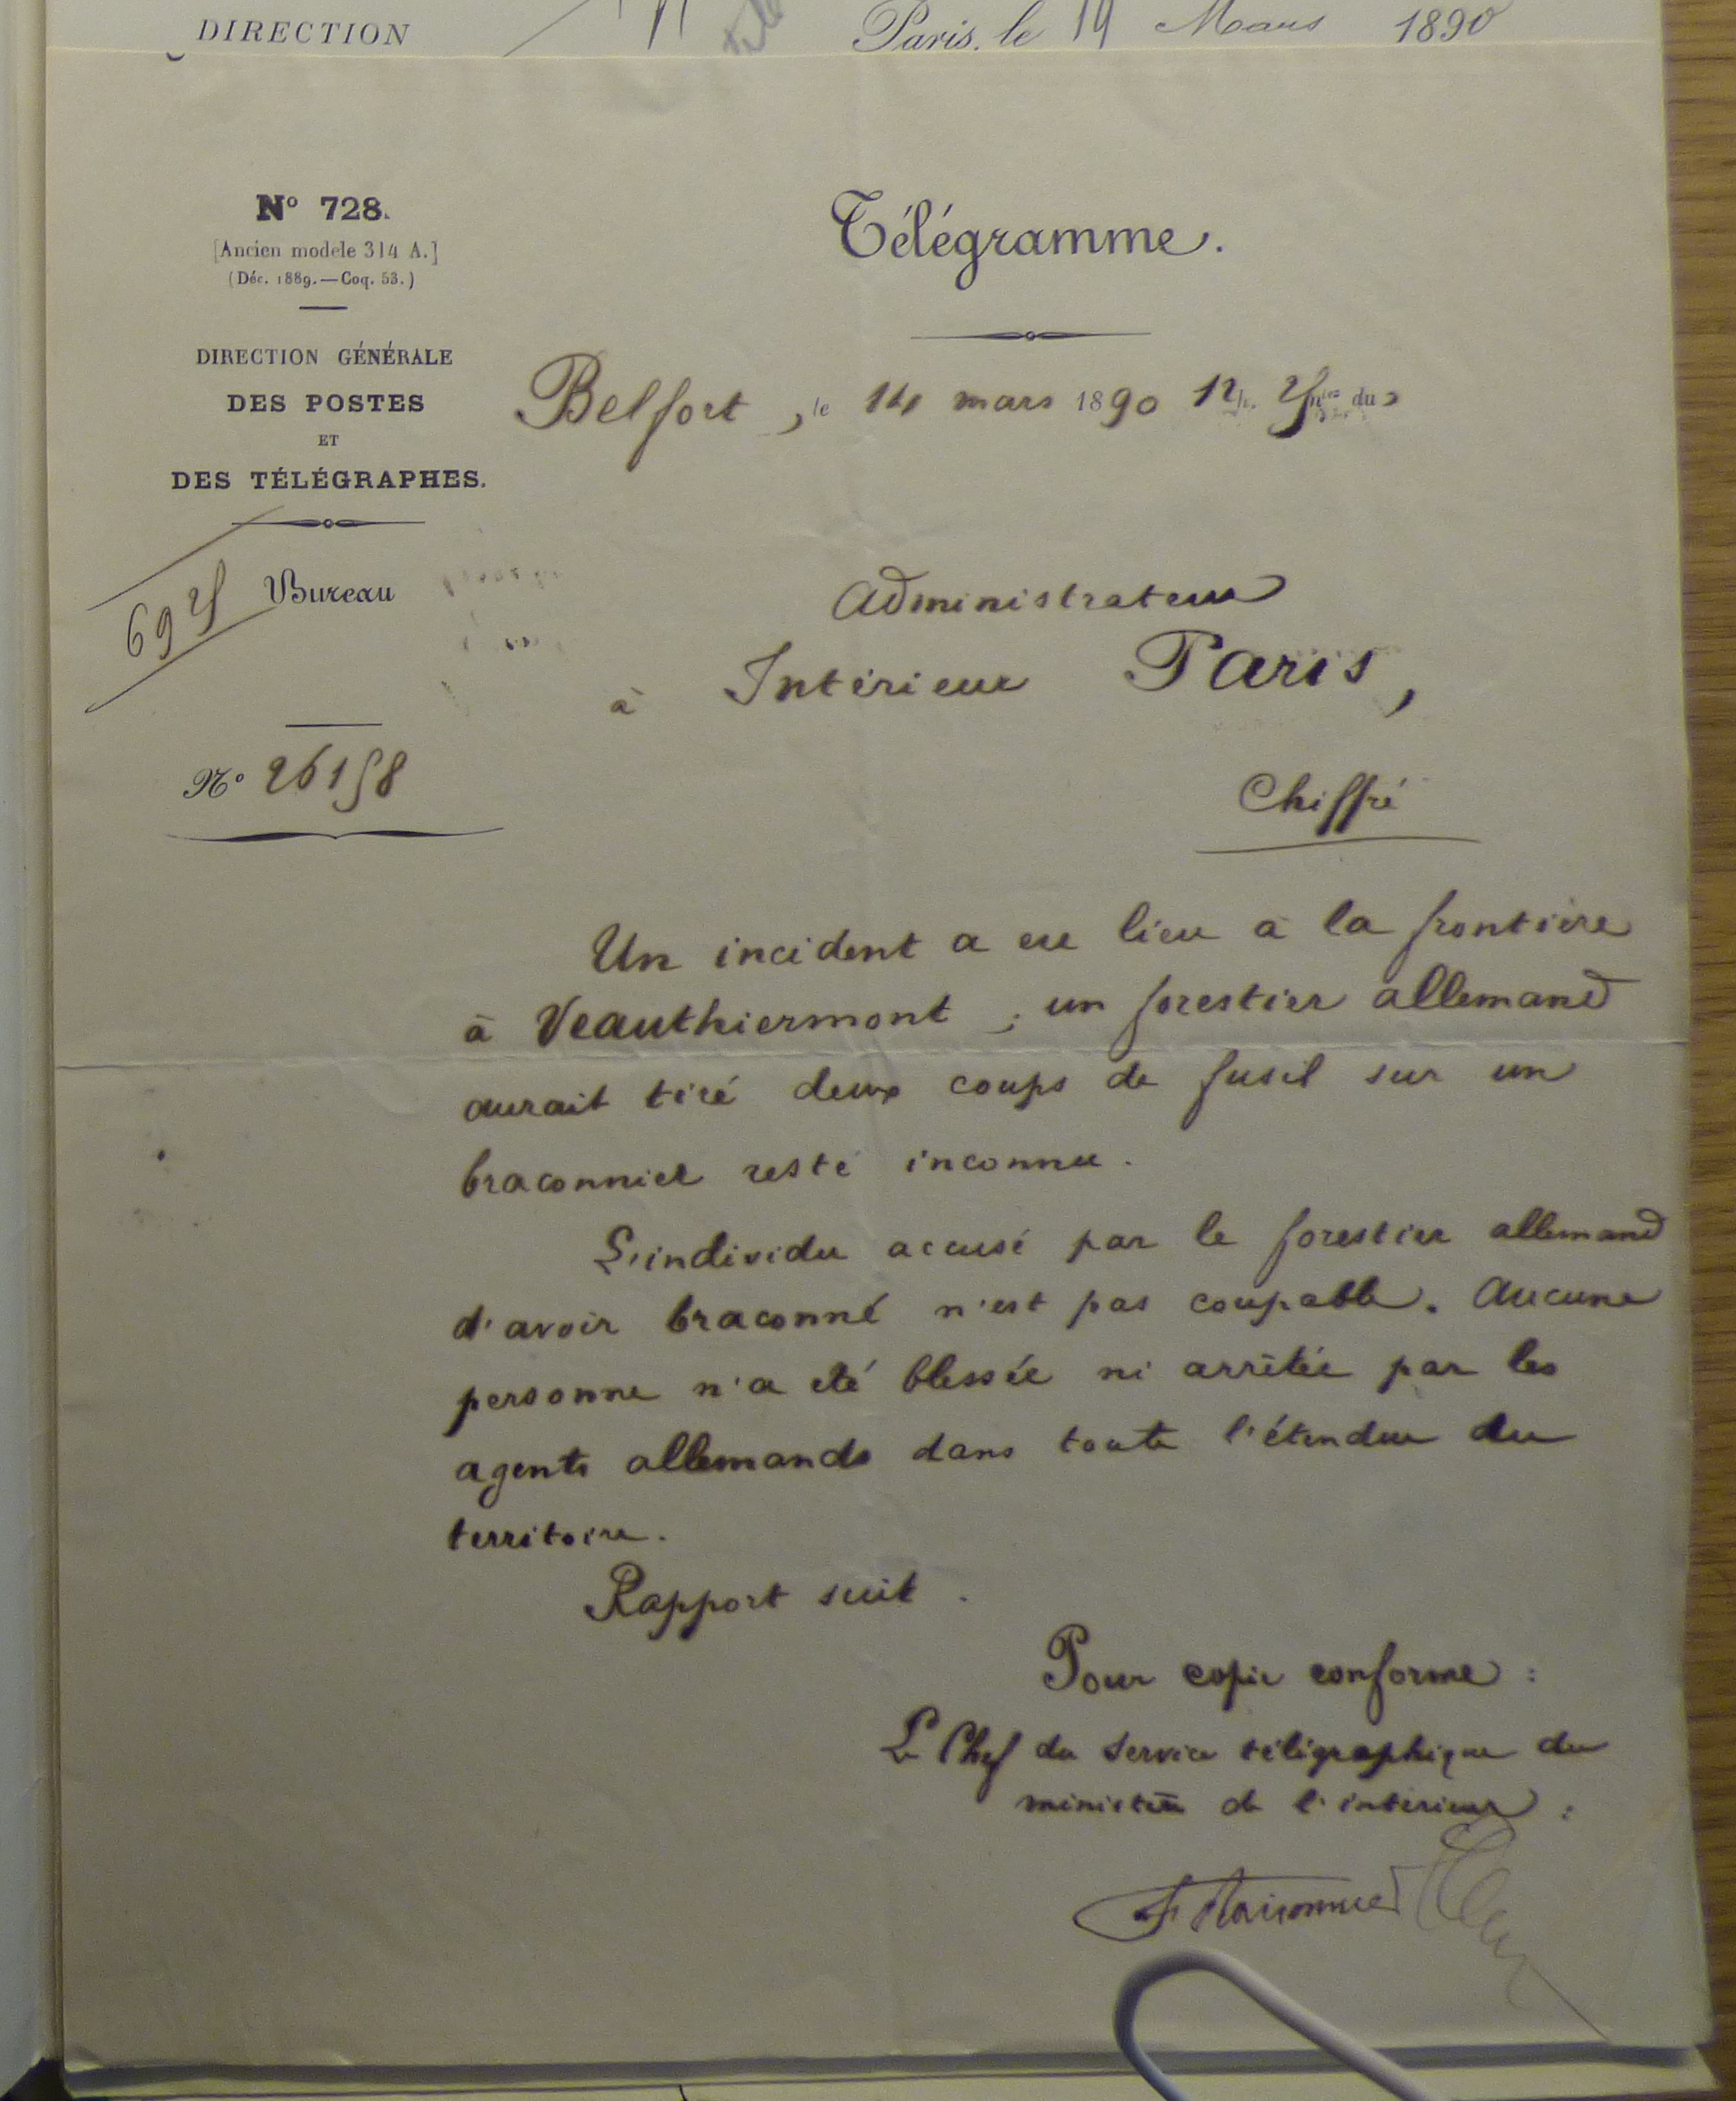 DIRECTION
Paris, le 14 Mars 1890
N° 728.
[Ancien modele 314 A.]
(Déc. 1889.—Coq. 53.)
DIRECTION GÉNÉRALE
DES POSTES
ET
DES TÉLÉGRAPHES.
Bureau
N° 26158
Télégramme.
Belfort, le 14 mars 1890 12h. 5 mtes du s
Administrateur
à Intérieur Paris,
Chiffré
Un incident a eu lieu à la frontière
à Veauthiermont ; un forestier allemand
aurait tiré deux coups de fusil sur un
braconnier resté inconnu.
L'individu accusé par le forestier allemand
d'avoir braconné n'est pas coupable. Aucune
personne n'a été blessée ni arrêtée par les
agents allemands dans toute l'étendue du
territoire.
Rapport suit.
Pour copie conforme :
Le Chef du service télégraphique du
ministère de l'intérieur :